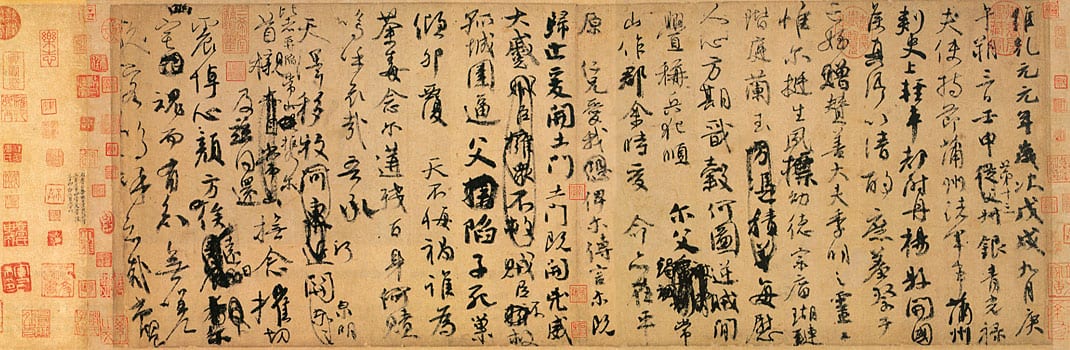 維乾元元年歲次戊戌九月庚
午朔三日壬申第十三叔銀青光祿
夫使持節蒲州諸軍事蒲州
刺史上輕車都尉丹楊縣開國
侯真卿以清酌庶羞祭于
亡姪贈贊善大夫季明之靈曰
惟爾挺生夙標幼德宗廟瑚璉
階庭蘭玉方憑積善每慰
人心方期戩穀何圖逆賊閒
釁稱兵犯順爾父竭誠常
山作郡余時受命亦在平
原仁兄愛我俾爾傳言爾既
歸止爰開土門土門既開凶威
大蹙賊臣擁眾不救賊臣不救
孤城圍逼父陷子死巢
傾卵覆天不悔禍誰為
荼毒念爾遘殘百身何贖
嗚呼哀哉吾承
天澤移牧河東近河關泉明
比者再陷常山攜爾
首櫬及茲同還撫念摧切
震悼心顏方俟遠日卜爾
幽宅魂而有知無嗟
久客嗚呼哀哉尚饗